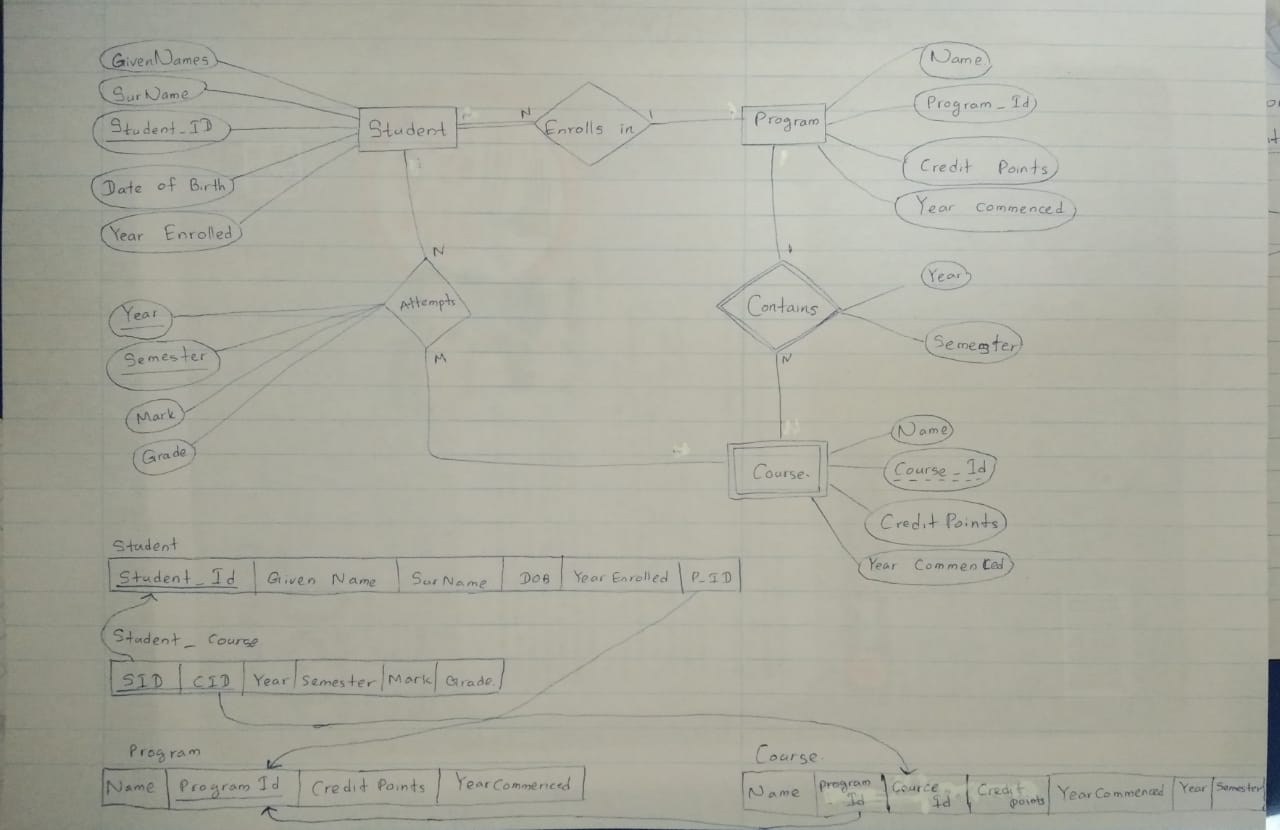 GivenNames
SurName
Student_ID
Date of Birth
Year Enrolled
Student
N
Enrolls in
1
Program
Name
Program_Id
Credit Points
Year Commenced
N
Attempts
M
Year
Semester
Mark
Grade
1
Contains
N
Year
Semester
Course.
Name
Course_Id
Credit Points
Year Commenced
Student
Student_Id Given Name SurName DOB Year Enrolled P_ID
Student_Course
SID CID Year Semester Mark Grade.
Program
Name Program Id Credit Points Year Commenced
Course.
Name program Id Cource Id Credit points Year Commenced Year Semester